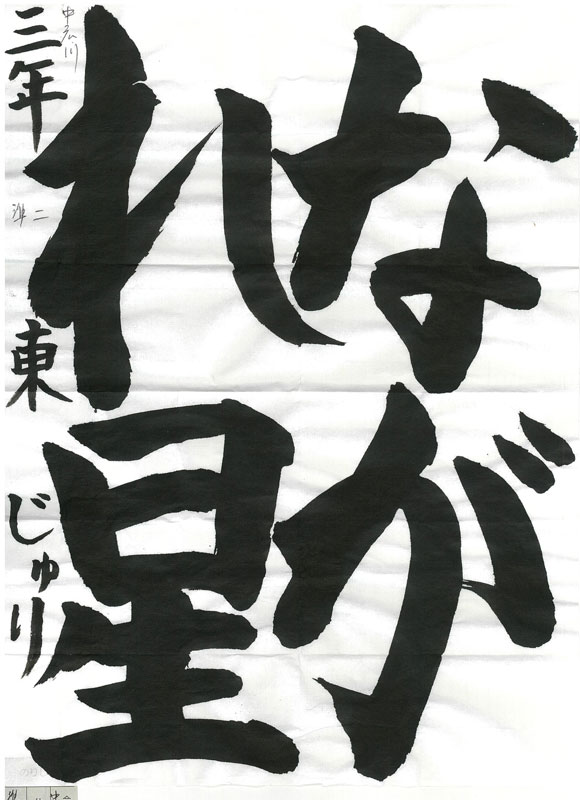 なが
れ星
三年 東 じゅり
中広川
準二